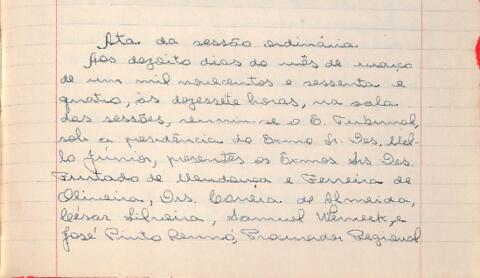 Ata da sessão ordinária
Aos dezoito dias do mês de março
de um mil novecentos e sessenta e
quatro, às dezessete horas, na sala
das sessões, reuniu-se o E. Tribunal,
sob a presidência do Exmo Sr. Des. Mel-
lo Júnior, presentes os Exmos Srs Des.
Furtado de Mendonça e Ferreira de
Oliveira, Drs. Correia de Almeida,
César Silveira, Samuel Werneck, e
José Pinto Rennó, Procurador Regional